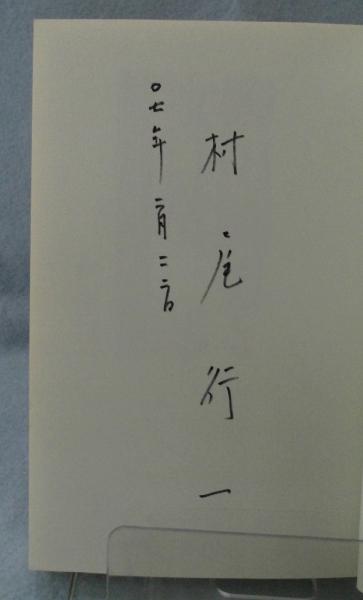 村尾行一
〇七年二月二二日